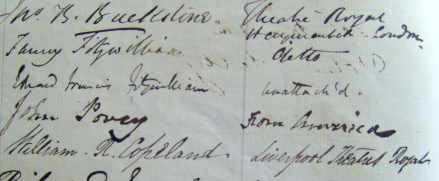 Jno. B. Buckstone. Theatre Royal
Haymarket - London
Fanny Fitzwilliam Ditto
Edward Francis Fitzwilliam unattach'd.
John Povey From America
William R. Copeland Liverpool Theatres Royal